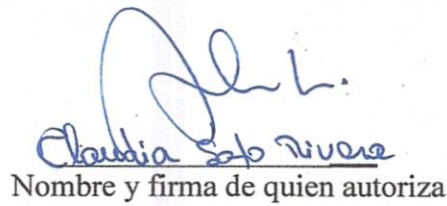 Claudia Soto Rivera
Nombre y firma de quien autoriza